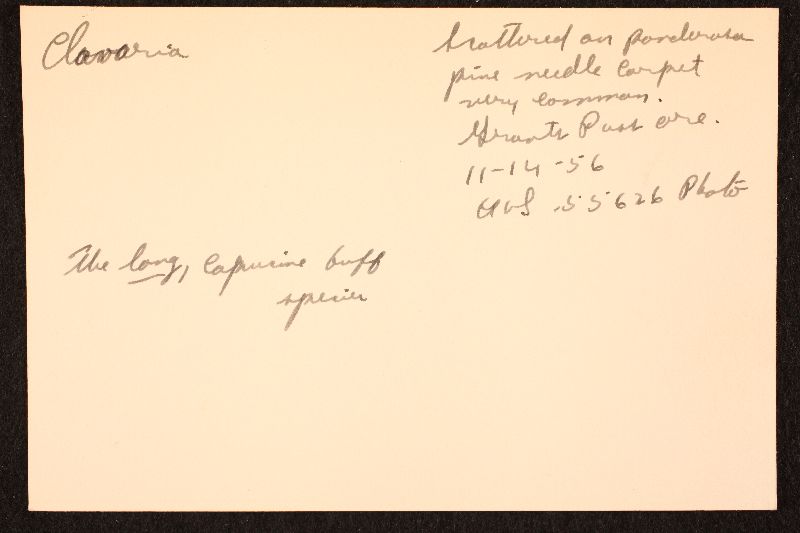 Clavaria
Scattered on ponderosa
pine needle carpet
very common.
Grants Pass ore.
11-14-56
AHS 55626 Photo
The long, capucine buff
species